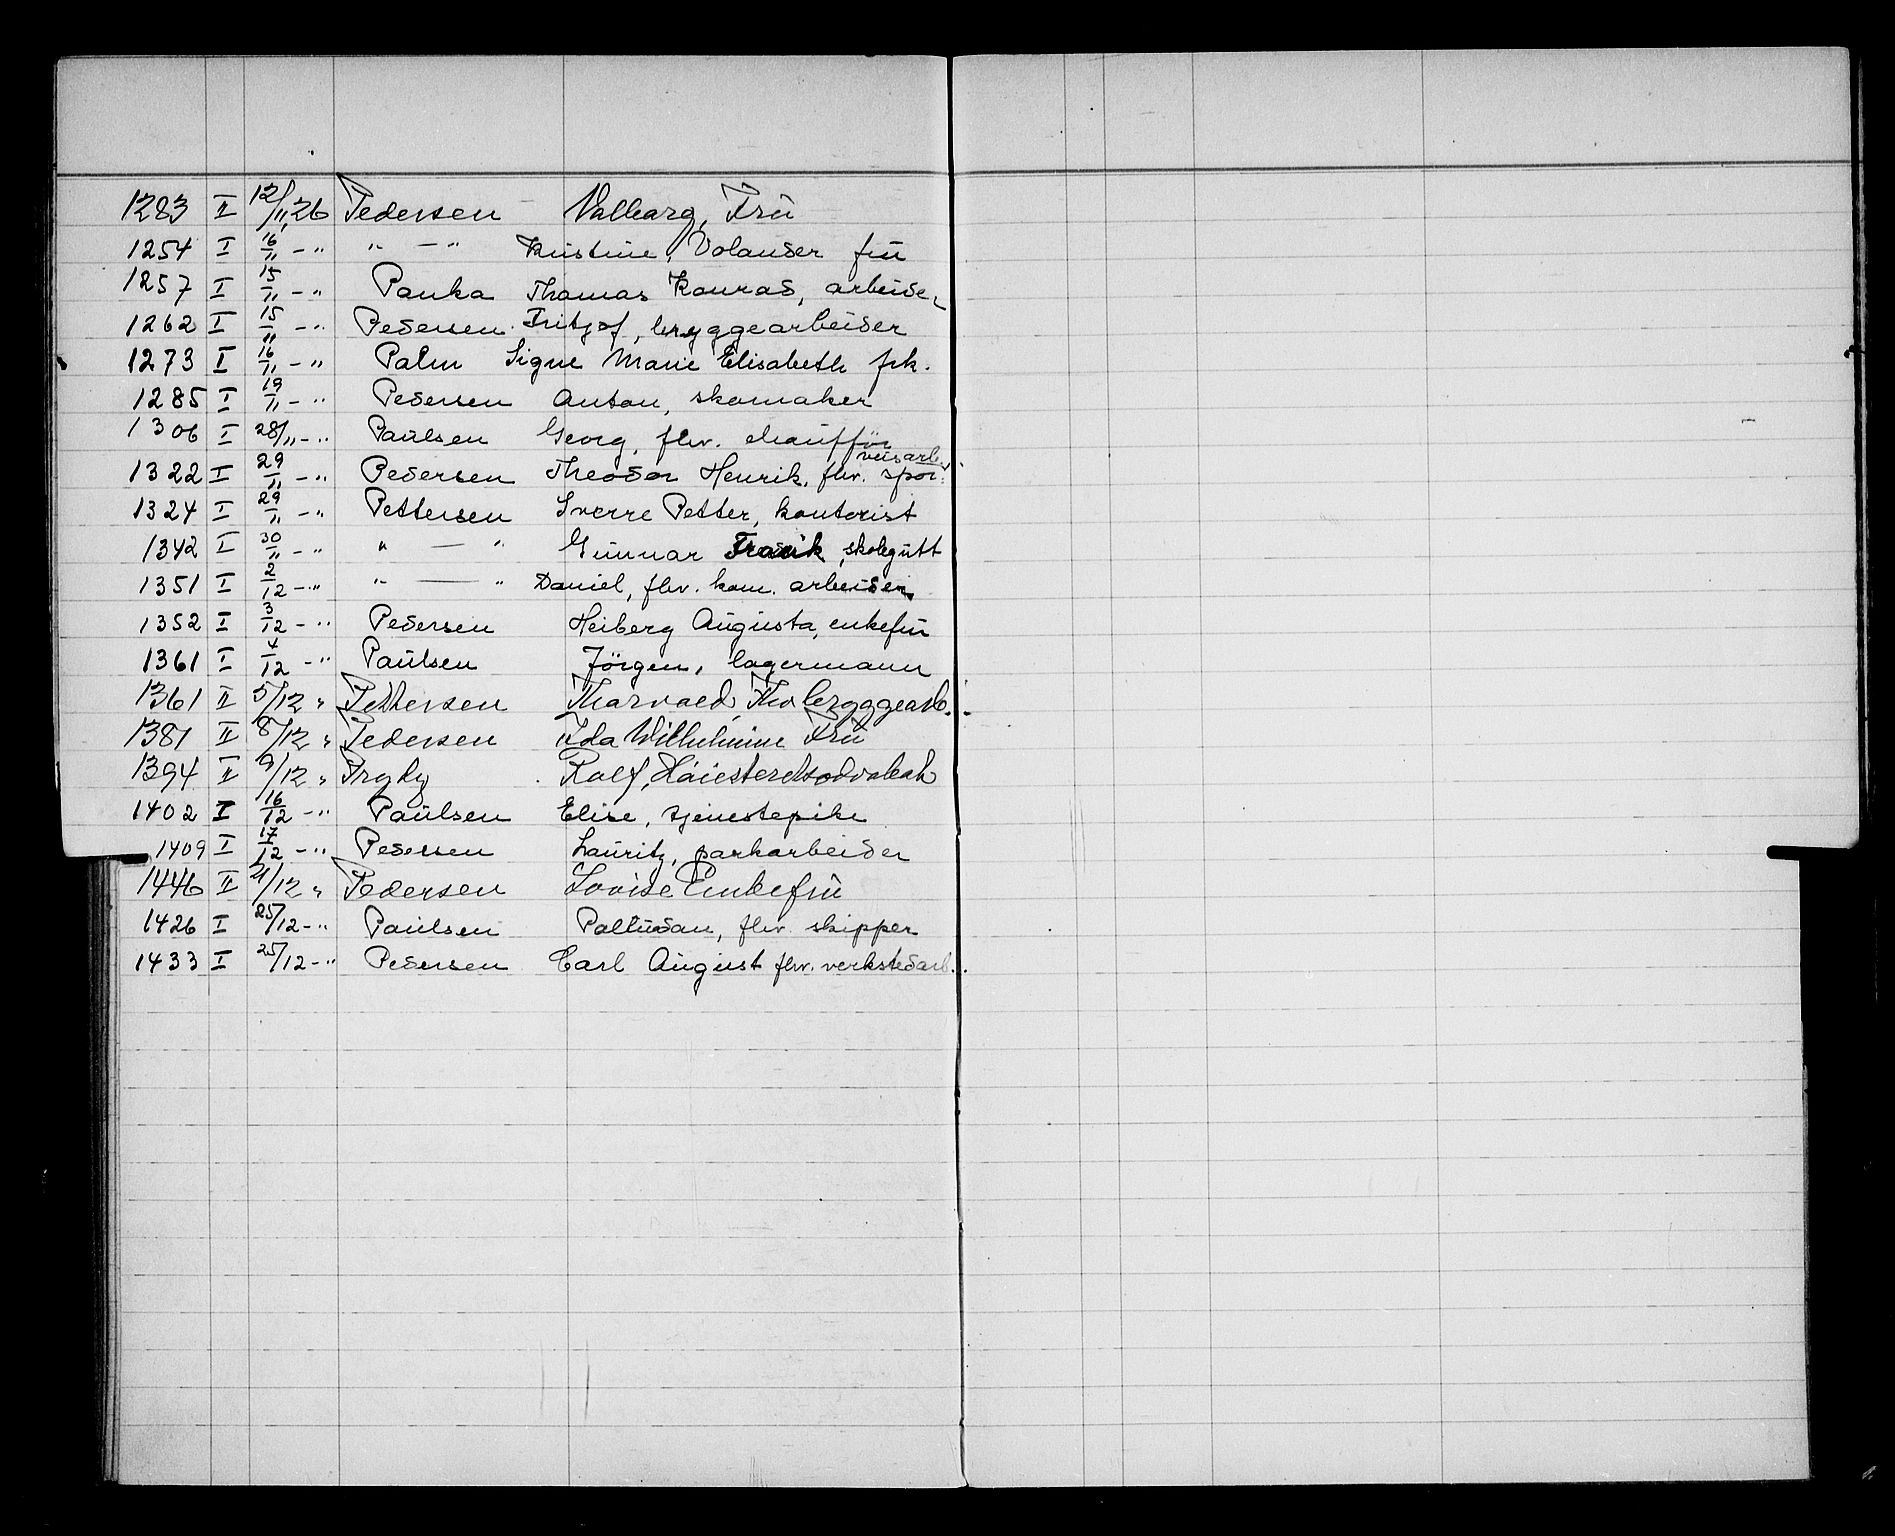 1283 II 12/11 26 Pedersen - Valborg, Fru
1254 I 16/11 - " " - " Kristine, Volanser fru
1257 I 15/11 - " Panka Thomas Konrad, arbeider
1262 I 15/11 - " Pedersen Fritjof, bryggearbeider
1273 I 16/11 - " Palm Signe Marie Elisabeth frk.
1285 I 19/11 - " Pedersen Anton, skomaker
1306 I 28/11 - " Paulsen Georg, fhv. chaufför
1322 I 29/11 - " Pedersen Theodor Henrik, fhv. spor. veisarb.
1324 I 29/11 - " Pettersen Sverre Petter, kontorist
1342 I 30/11 - " " — " Gunnar Fredrik, skolegutt
1351 I 2/12 - " " — " Daniel, fhv. kom. arbeider
1352 I 3/12 - " Pedersen Heiberg Augusta, enkefru
1361 I 4/12 - " Paulsen Jörgen, lagermann
1361 II 5/12 " Pettersen Thorvald, Fhv bryggearb.
1381 II 8/12 " Pedersen Ida Wilhelmine Fru
1394 II 9/12 " Pryhy Ralf, Höiesteretsadvokat
1402 I 16/12 - " Paulsen Elise, tjenestepike
1409 I 17/12 - " Pedersen Lauritz, parkarbeider
1446 II 21/12 " Pedersen Lovise Enkefru
1426 I 25/12 - " Paulsen Palludan, fhv. skipper
1433 I 25/12 - " Pedersen Carl August fhv. verkstedarb.